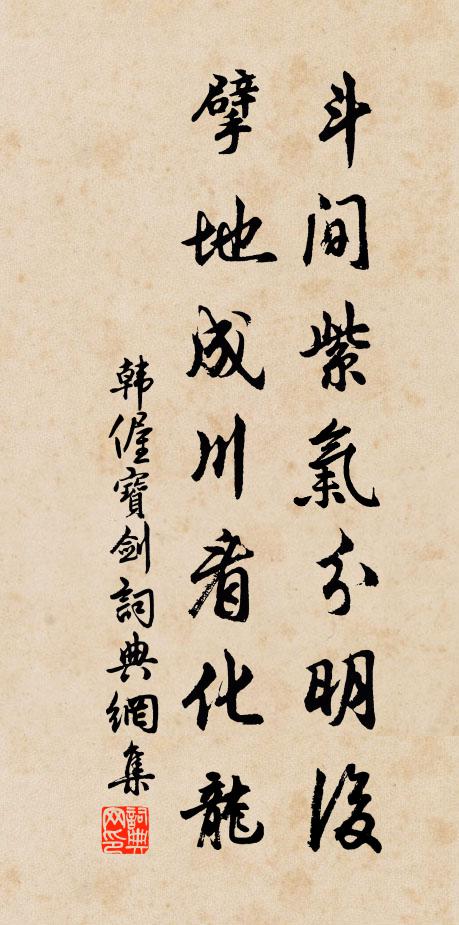 斗间紫氣分明後
擘地成川看化龍
韩偓寶劍詞典網集
詞典網印